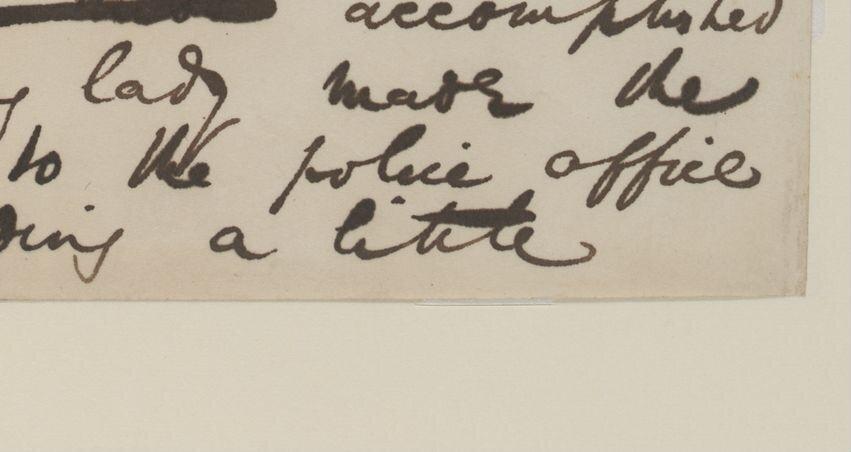 accomplished
lady made the
to the police office
a little